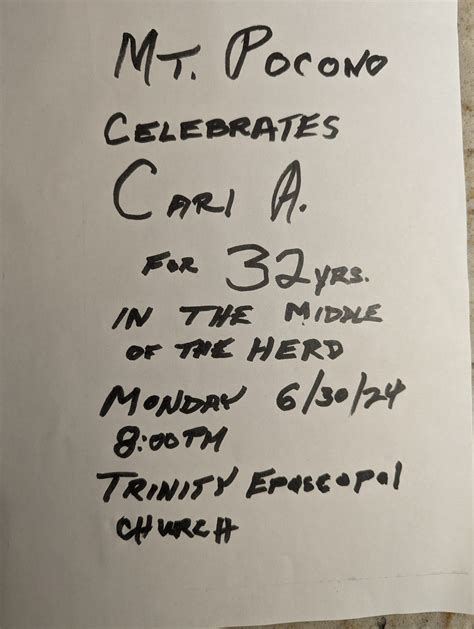 Mt. Pocono
Celebrates
Cari A.
For 32 yrs.
in the Middle
of the Herd
Monday 6/30/24
8:00PM
Trinity Epescopal
Church